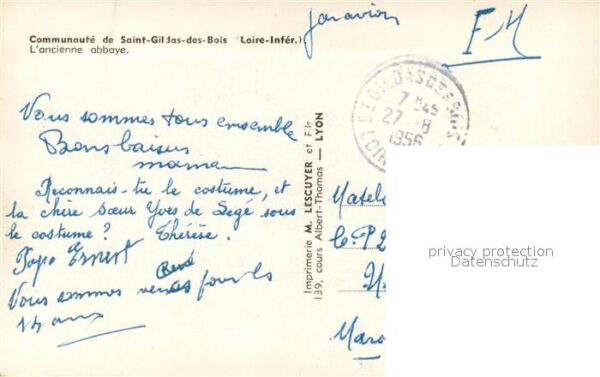 Communauté de Saint-Gildas-des-Bois (Loire-Infér.)
L'ancienne abbaye.
par avion
F-M
ST GILDAS DES BOIS
7 H45
27-8
1956
LOIRE
Vous sommes tous ensemble
Bons baisers
maman
Reconnais-tu le costume, et
la chère sœur Yves de Segé sous
le costume ? Thérèse.
Papo Ernest
René
Vous sommes venus pour les
14 ans
Imprimerie M. LESCUYER et Fils
139, cours Albert-Thomas — LYON
Matelo
C.P 2
Maro
privacy protection
Datenschutz